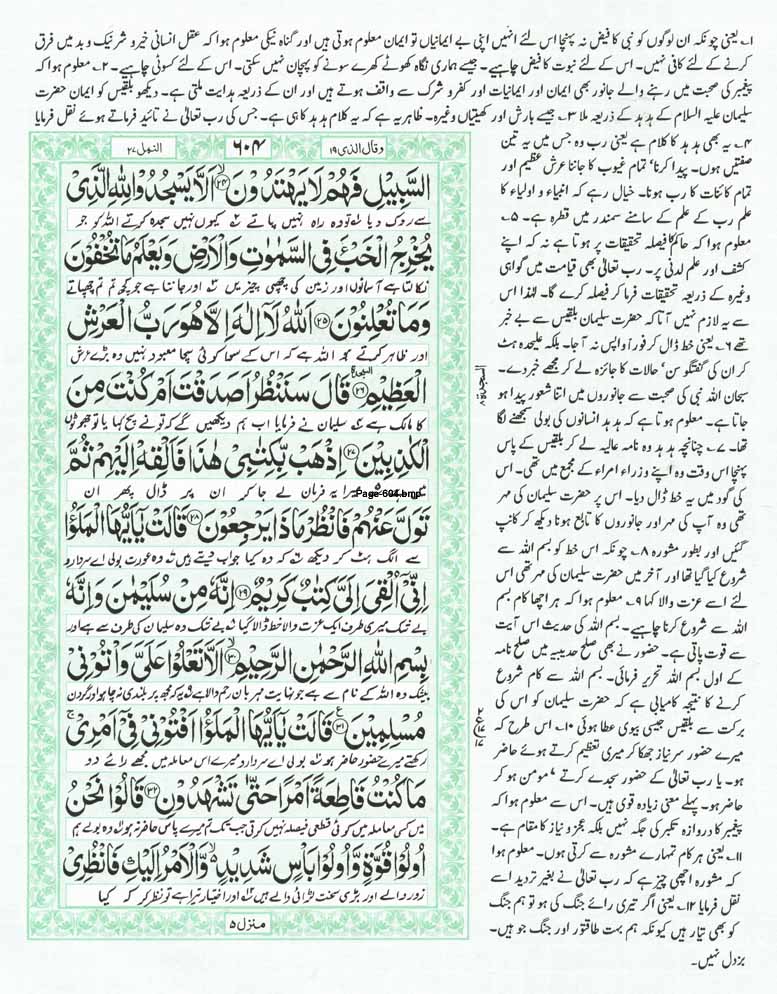 ۱۔ یعنی چونکہ ان لوگوں کو نبی کا فیض نہ پہنچا اس لئے انہیں اپنی بے ایمانیاں تو ایمان معلوم ہوتی ہیں اور گناہ نیکی معلوم ہوا کہ عقل انسانی خیر و شر نیک و بد میں فرق
کرنے کے لئے کافی نہیں۔ اس کے لئے نبوت کا فیض چاہیے۔ جیسے ہماری نگاہ کھوٹے کھرے سونے کو پہچان نہیں سکتی۔ اس کے لئے کسوٹی چاہیے۔ ۲۔ معلوم ہوا کہ
پیغمبر کی صحبت میں رہنے والے جانور بھی ایمان اور ایمانیات اور کفر و شرک سے واقف ہوتے ہیں اور ان کے ذریعہ ہدایت ملتی ہے۔ دیکھو بلقیس کو ایمان حضرت
سلیمان علیہ السلام کے ہدہد کے ذریعہ ملا ۳۔ جیسے بارش اور کھیتیاں وغیرہ۔ ظاہر یہ ہے کہ یہ کلام ہدہد کا ہی ہے۔ جس کی رب تعالیٰ نے تائید فرماتے ہوئے نقل فرمایا
۴۔ یہ بھی ہدہد کا کلام ہے یعنی رب وہ جس میں یہ تین
صفتیں ہوں۔ پیدا کرنا، تمام غیوب کا جاننا عرش عظیم اور
تمام کائنات کا رب ہونا۔ خیال رہے کہ انبیاء و اولیاء کا
علم رب کے علم کے سامنے سمندر میں قطرہ ہے۔ ۵۔
معلوم ہوا کہ حاکم کا فیصلہ تحقیقات پر ہوتا ہے نہ کہ اپنے
کشف اور علم لدنی پر۔ رب تعالیٰ بھی قیامت میں گواہی
وغیرہ کے ذریعہ تحقیقات فرما کر فیصلہ کرے گا۔ لہذا اس
سے یہ لازم نہیں آتا کہ حضرت سلیمان بلقیس سے بے خبر
تھے ۶۔ یعنی خط ڈال کر فوراً واپس نہ آ جا۔ بلکہ علیحدہ ہٹ
کر ان کی گفتگو سن، حالات کا جائزہ لے کر مجھے خبر دے۔
سبحان اللہ نبی کی صحبت سے جانوروں میں اتنا شعور پیدا ہو
جاتا ہے۔ معلوم ہوتا ہے کہ ہدہد انسانوں کی بولی سمجھنے لگا
تھا۔ ۷۔ چنانچہ ہدہد وہ نامہ عالیہ لے کر بلقیس کے پاس
پہنچا اس وقت وہ اپنے وزراء امراء کے مجمع میں تھی۔ اس
کی گود میں یہ خط ڈال دیا۔ اس پر حضرت سلیمان کی مہر
تھی وہ آپ کی مہر اور جانوروں کا تابع ہونا دیکھ کر کانپ
گئیں اور بطور مشورہ ۸۔ چونکہ اس خط کو بسم اللہ سے
شروع کیا گیا تھا اور آخر میں حضرت سلیمان کی مہر تھی اس
لئے اسے عزت والا کہا ۹۔ معلوم ہوا کہ ہر اچھا کام بسم
اللہ سے شروع کرنا چاہیے۔ بسم اللہ کی حدیث اس آیت
سے قوت پاتی ہے۔ حضور نے بھی صلح حدیبیہ میں صلح نامہ
کے اول بسم اللہ تحریر فرمائی۔ بسم اللہ سے کام شروع
کرنے کا نتیجہ کامیابی ہے کہ حضرت سلیمان کو اس کی
برکت سے بلقیس جیسی بیوی عطا ہوئی ۱۰۔ اس طرح کہ
میرے حضور سر نیاز جھکا کر میری تعظیم کرتے ہوئے حاضر
ہو۔ یا رب تعالیٰ کے حضور سجدے کرتے، مومن ہو کر
حاضر ہو۔ پہلے معنی زیادہ قوی ہیں۔ اس سے معلوم ہوا کہ
پیغمبر کا دروازہ تکبر کی جگہ نہیں بلکہ عجز و نیاز کا مقام ہے۔
۱۱۔ یعنی ہر کام تمہارے مشورہ سے کرتی ہوں۔ معلوم ہوا
کہ مشورہ اچھی چیز ہے کہ رب تعالیٰ نے بغیر تردید اسے
نقل فرمایا ۱۲۔ یعنی اگر تیری رائے جنگ کی ہو تو ہم جنگ
کو بھی تیار ہیں کیونکہ ہم بہت طاقتور اور جنگ جو ہیں۔
بزدل نہیں۔
وقال الذی ۱۹ ۶۰۴ النمل ۲۷
السَّبِيْلِ فَهُمْ لَا يَهْتَدُوْنَ ۙ﴿۲۴﴾ اَلَّا يَسْجُدُوْا لِلّٰهِ الَّذِيْ
سے روک دیا تو وہ راہ نہیں پاتے کیوں نہیں سجدہ کرتے اللہ کو جو
يُخْرِجُ الْخَبْءَ فِي السَّمٰوٰتِ وَالْاَرْضِ وَيَعْلَمُ مَا تُخْفُوْنَ
نکالتا ہے آسمانوں اور زمین کی چھپی چیزیں اور جانتا ہے جو کچھ تم چھپاتے
وَمَا تُعْلِنُوْنَ ﴿۲۵﴾ اَللّٰهُ لَا اِلٰهَ اِلَّا هُوَ رَبُّ الْعَرْشِ
اور ظاہر کرتے اللہ ہے کہ اس کے سوا کوئی سچا معبود نہیں وہ بڑے عرش
الْعَظِيْمِ ﴿۲۶﴾ قَالَ سَنَنْظُرُ اَصَدَقْتَ اَمْ كُنْتَ مِنَ
کا مالک ہے سلیمان نے فرمایا اب ہم دیکھیں گے کہ تو نے سچ کہا یا تو جھوٹوں
الْكٰذِبِيْنَ ﴿۲۷﴾ اِذْهَبْ بِّكِتٰبِيْ هٰذَا فَاَلْقِهْ اِلَيْهِمْ ثُمَّ
یہ فرمان لے جا کر ان پر ڈال پھر ان
Page-604.bmp
تَوَلَّ عَنْهُمْ فَانْظُرْ مَاذَا يَرْجِعُوْنَ ﴿۲۸﴾ قَالَتْ يٰۤاَيُّهَا الْمَلَؤُا
سے الگ ہٹ کر دیکھ کہ وہ کیا جواب دیتے ہیں وہ عورت بولی اے سردارو
اِنِّيْۤ اُلْقِيَ اِلَيَّ كِتٰبٌ كَرِيْمٌ ﴿۲۹﴾ اِنَّهٗ مِنْ سُلَيْمٰنَ وَاِنَّهٗ
بے شک میری طرف ایک عزت والا خط ڈالا گیا بے شک وہ سلیمان کی طرف سے ہے اور
بِسْمِ اللّٰهِ الرَّحْمٰنِ الرَّحِيْمِ ۙ﴿۳۰﴾ اَلَّا تَعْلُوْا عَلَيَّ وَاْتُوْنِيْ
بیشک وہ اللہ کے نام سے ہے جو نہایت مہربان رحم والا ہے یہ کہ مجھ پر بلندی نہ چاہو اور گردن
مُسْلِمِيْنَ ﴿۳۱﴾ قَالَتْ يٰۤاَيُّهَا الْمَلَؤُا اَفْتُوْنِيْ فِيْۤ اَمْرِيْ ۚ
رکھتے میرے حضور حاضر ہو بولی اے سردارو میرے اس معاملہ میں مجھے رائے دو
مَا كُنْتُ قَاطِعَةً اَمْرًا حَتّٰى تَشْهَدُوْنِ ﴿۳۲﴾ قَالُوْا نَحْنُ
میں کسی معاملہ میں کوئی قطعی فیصلہ نہیں کرتی جب تک تم میرے پاس حاضر نہ ہو وہ بولے ہم
اُولُوْا قُوَّةٍ وَّاُولُوْا بَاْسٍ شَدِيْدٍ ۙ وَّالْاَمْرُ اِلَيْكِ فَانْظُرِيْ
زور والے اور بڑی سخت لڑائی والے ہیں اور اختیار تیرا ہے تو نظر کر کہ کیا
منزل ۵
السجدۃ ۸